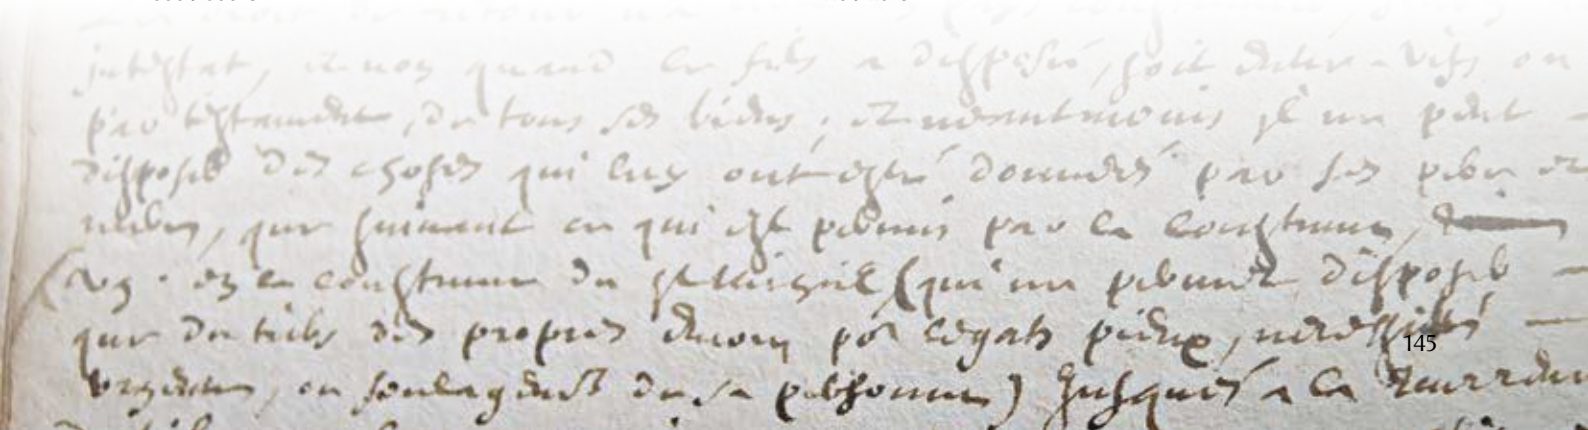 intestat, et non quand le fils a disposé, soit entre-vifs ou
par testament, de tous ses biens; et neantmoins il ne peut
disposer des choses qui luy ont esté données par ses pere et
mere, que suivant ce qui est permis par la coustume,
en la coustume de St Mihiel (qui ne permet disposer
que du tiers des propres por legats pieux, necessités
145
urgentes, ou soulagemt de sa personne) jusques a la